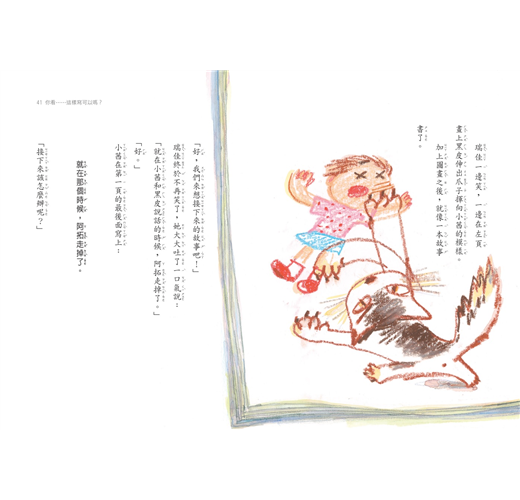 瑞佳一邊笑，一邊在左頁
畫上黑皮伸出爪子揮向小茜的模樣。
加上圖畫之後，就像一本故事
書了。
「好，我們來想接下來的故事吧！」
瑞佳終於不再笑了，她大大吐了一口氣說：
「就在小茜和黑皮說話的時候，阿拓走掉了。」
「好。」
小茜在第一頁的最後面寫上：
就在那個時候，阿拓走掉了。
「接下來該怎麼辦呢？」
41 你看──這樣寫可以嗎？